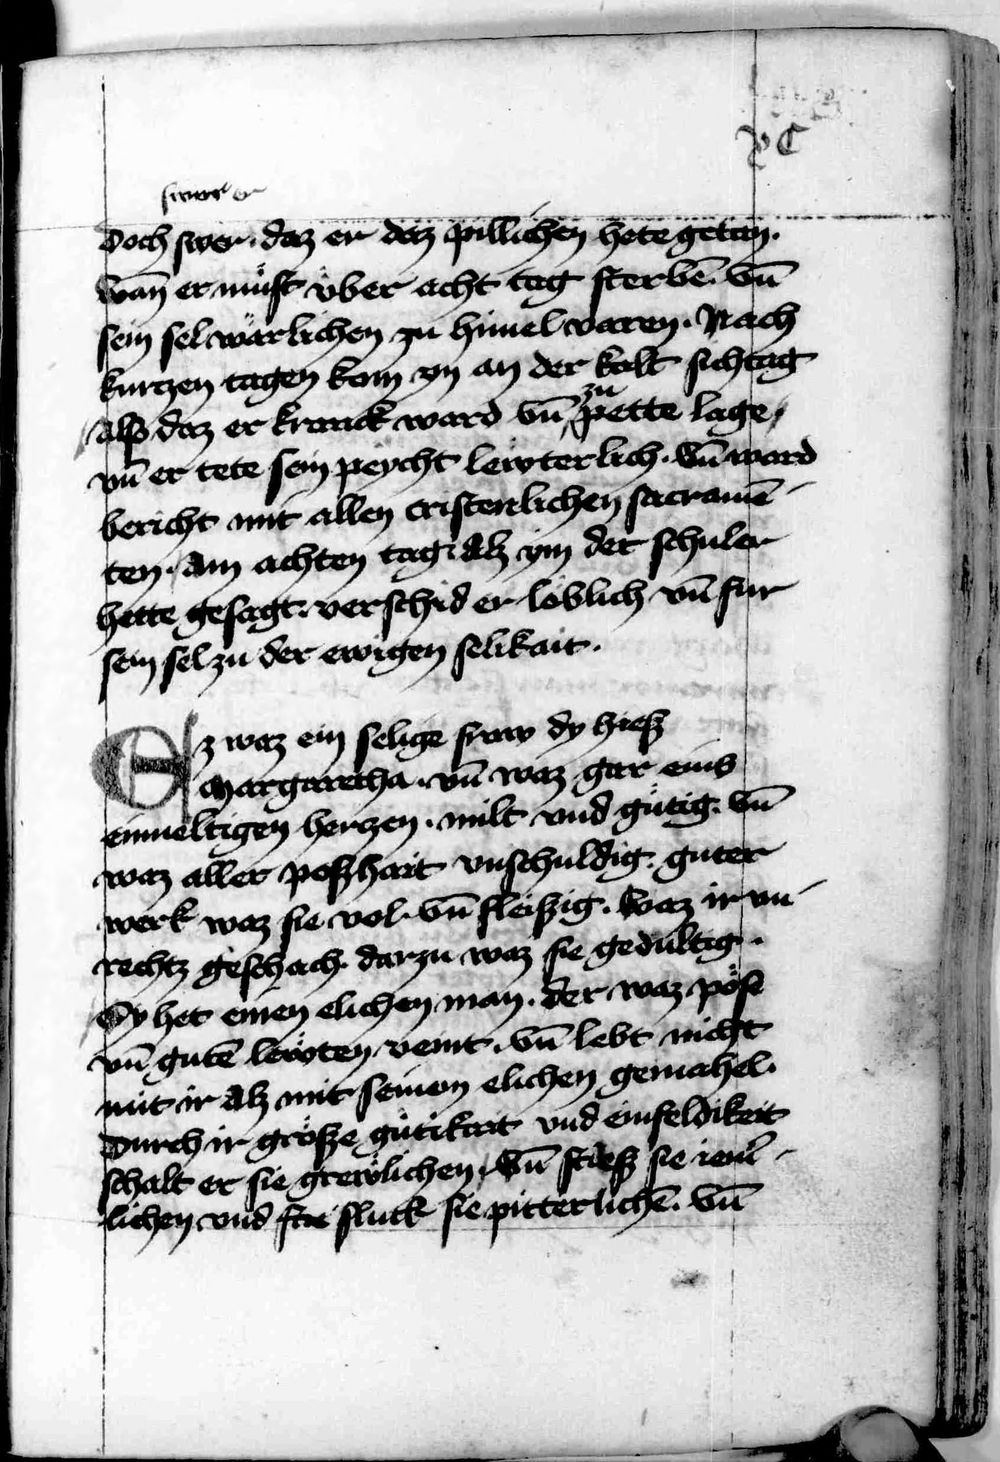 xC
swer er
Doch swer. daz er daz pillichen hete getan.
wan̄ er müst vber acht tag sterbē. vn̄
sein sel wärlichen zu himel varen. Nach
kurczen tagen kom yn an der kalt sichtag
alß daz er kranck ward vn̄ zu pette lage
vn̄ er tete sein peycht lewterlich. vn̄ ward
bericht mit allen cristenlichen sacramē
ten. Am achten tag. Alz ym der schuler
hette gesagt. verschid er löblich vn̄ fur
sein sel zu der ewigen selikait.
Ez waz ein selige fraw dy hieß
Margaretha. vn̄ waz gar eins
einueltigen herczen. milt vnd gütig. vn̄
waz aller poßhait vnschuldig. guter
werk waz sie vol. vn̄ fleißig. waz ir vn
rechtz geschach. darzu waz sie gedultig.
Dy het einen elichen man. der waz pöß
vn̄ gutē lewten veint. vn̄ lebt nicht
mit ir Alz mit seinen elichen gemahel.
Durch ir größe gütikait vnd einfeldikeit
schalt er sie grewlichen. vn̄ stieß sie
lichen vnd sluck sie pitterlichē. vn̄